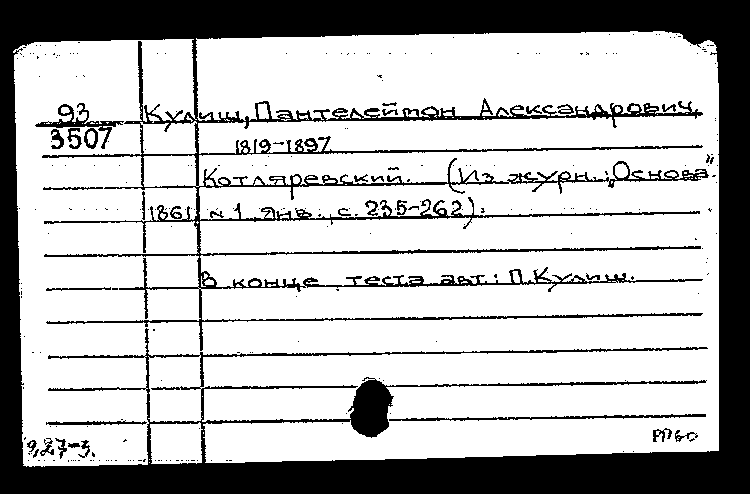 93 Кулиш, Пантелеймон Александрович,
3507 1819-1897
Котляревский. (Из журн.: „Основа”.
1861, № 1, янв., с. 235-262).
В конце теста авт.: П. Кулиш.
РПбо